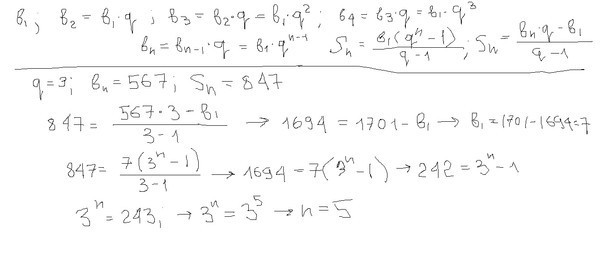 в₁; в₂ = в₁·q; в₃ = в₂·q = в₁·q²; в₄ = в₃·q = в₁·q³
вₙ = вₙ₋₁·q = в₁·qⁿ⁻¹ Sₙ = в₁(qⁿ-1)/(q-1); Sₙ = (вₙ·q-в₁)/(q-1)
q=3; вₙ = 567; Sₙ = 847
847 = (567·3-в₁)/(3-1) → 1694 = 1701-в₁ → в₁=1701-1694=7
847 = 7(3ⁿ-1)/(3-1) → 1694=7(3ⁿ-1) → 242=3ⁿ-1
3ⁿ=243; → 3ⁿ=3⁵ → n=5